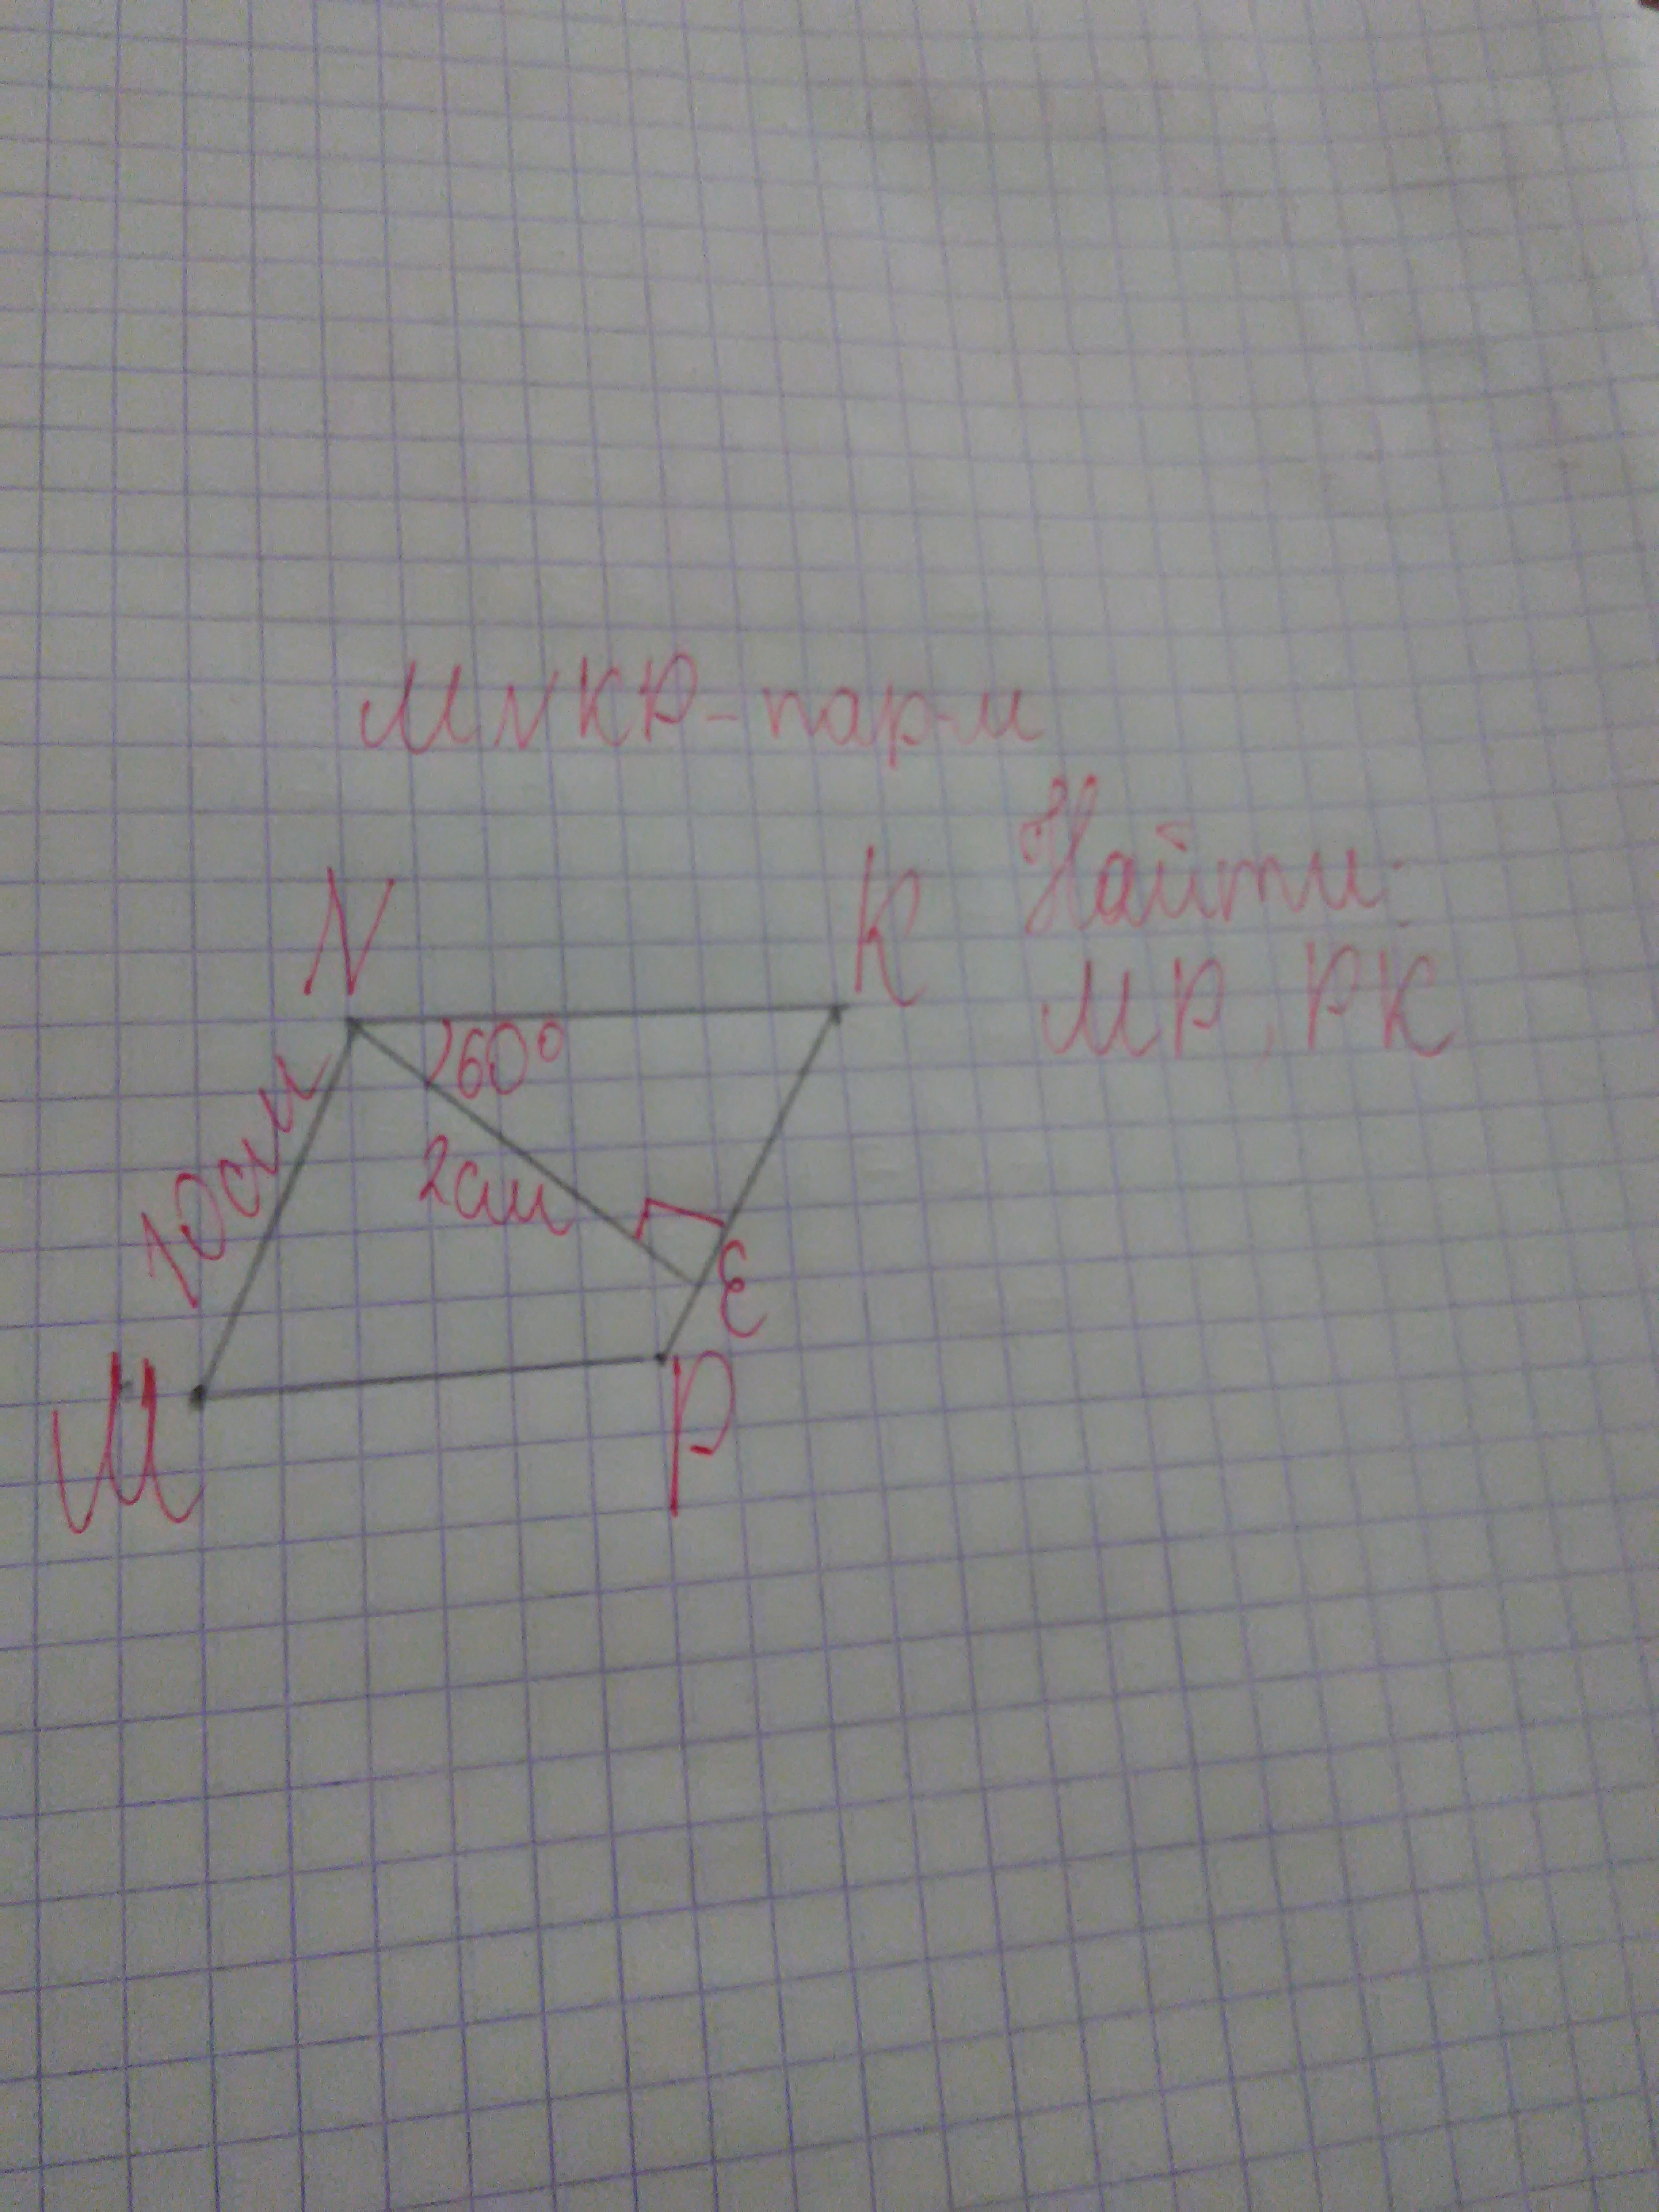 MNKP-пар-м
Найти:
MP, PK
N
K
60°
10см
2см
E
M
P